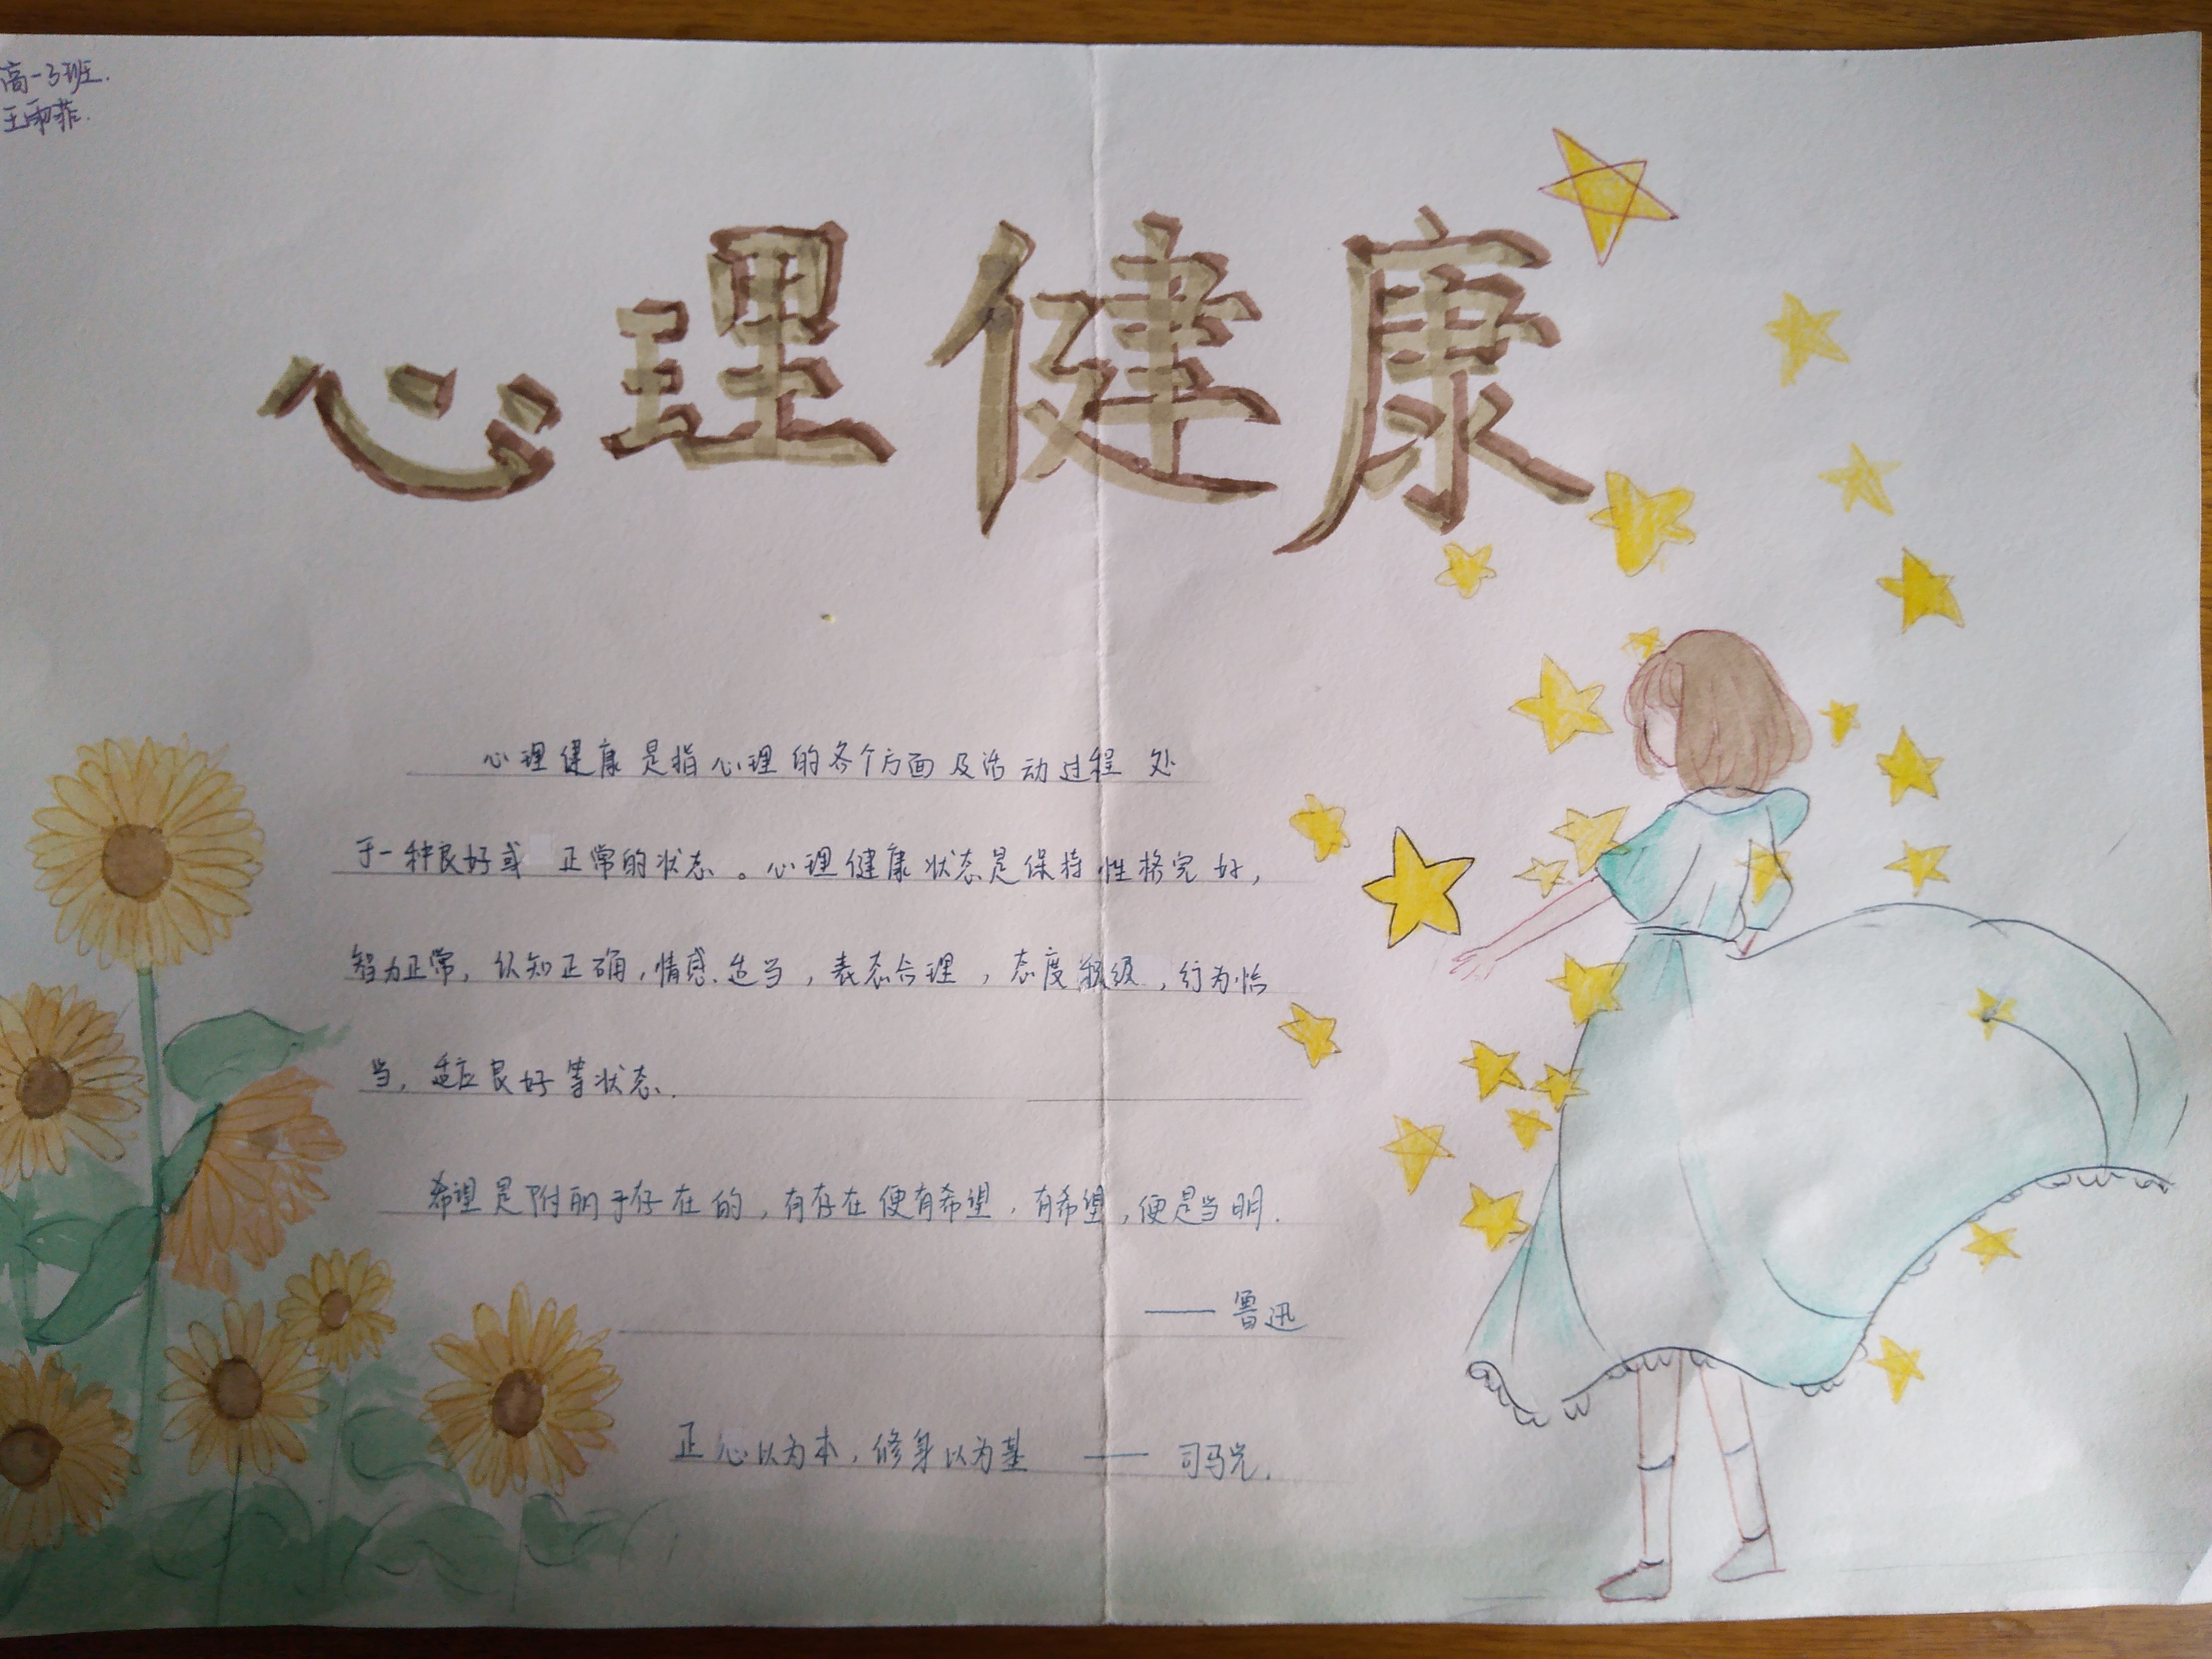 高一3班.
王雨菲.
心理健康
心理健康是指心理的各个方面及活动过程处
于一种良好或正常的状态。心理健康状态是保持性格完好,
智力正常,认知正确,情感适当,表态合理,态度积极,行为恰
当,适应良好等状态.
希望是附丽于存在的,有存在便有希望,有希望,便是光明.
——鲁迅
正心以为本,修身以为基 ——司马光.